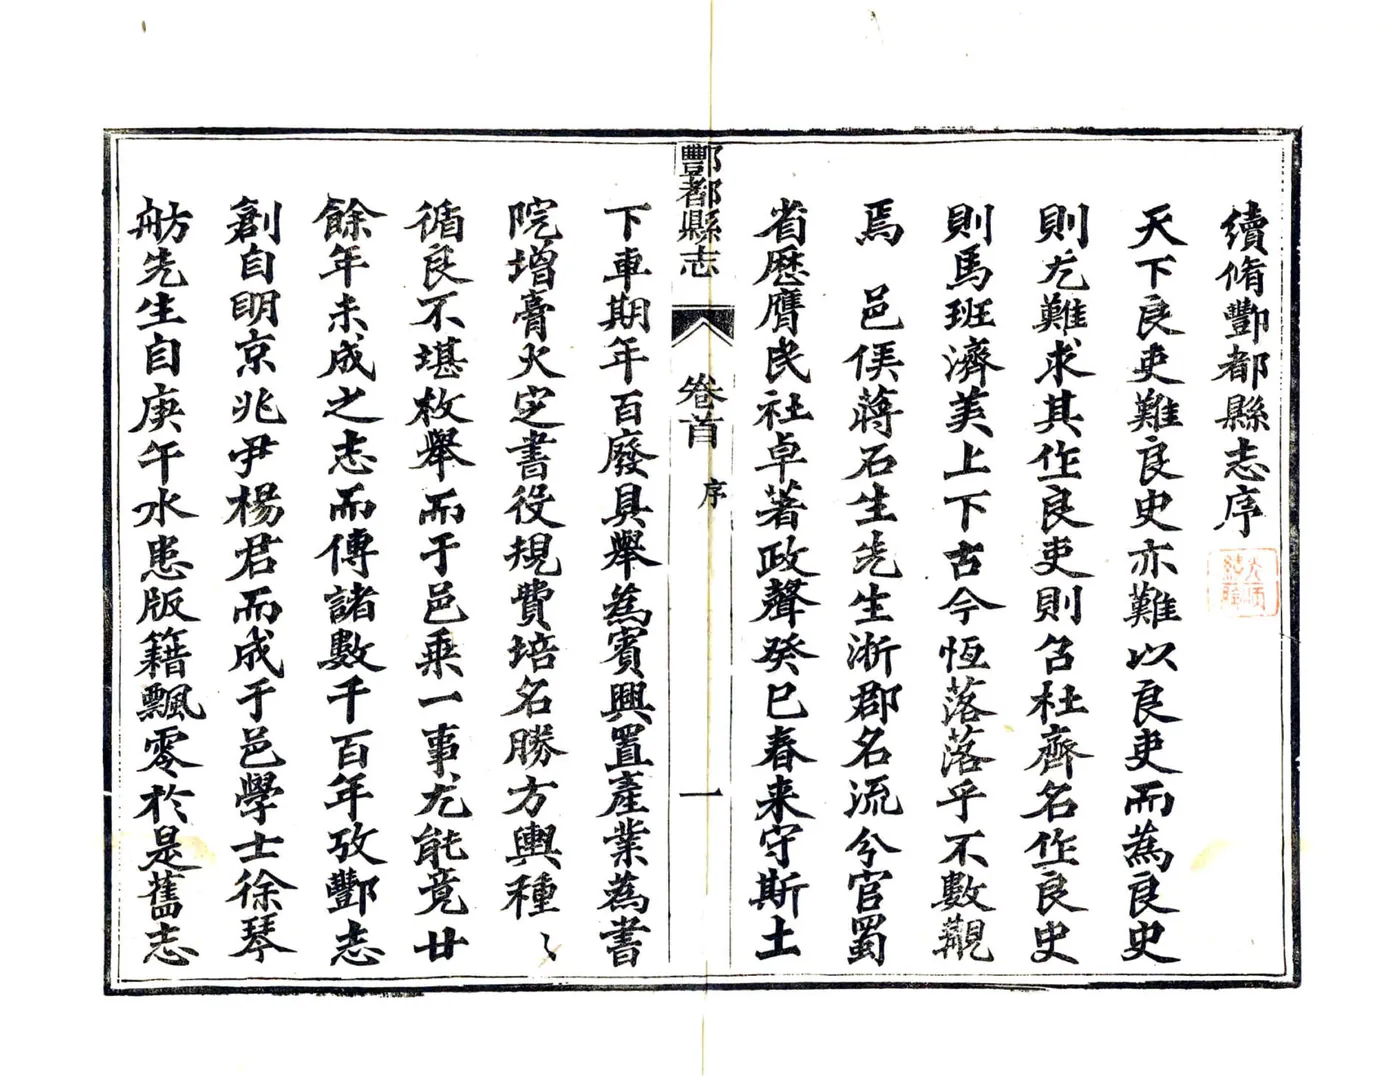 續脩酆都縣志序
天下良吏難良史亦難以良吏而為良史
則尤難求其作良吏則召杜齊名作良史
則馬班濟美上下古今恆落落乎不數覯
焉　邑侯蔣石生先生浙郡名流兮官蜀
省歷膺民社卓著政聲癸巳春来守斯土
酆都縣志
卷首
序
一
下車期年百廢具舉為賓興置產業為書
院增膏火定書役規費培名勝方輿種〻
循良不堪枚舉而于邑乗一事尤能竟廿
餘年未成之志而傳諸數千百年攷酆志
創自明京兆尹楊君而成于邑學士徐琴
舫先生自庚午水患版籍飄零於是舊志